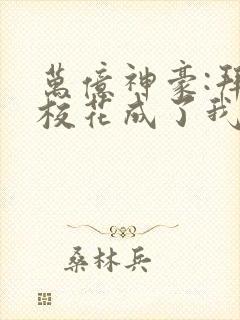 萬億神豪:
校花成了我
桑林兵